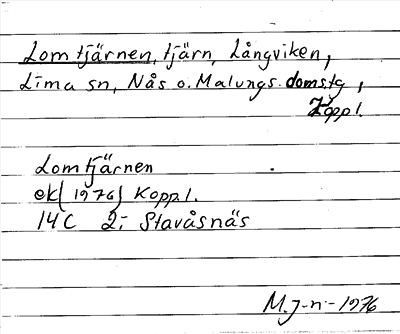 Lomtjärnen, tjärn, Långviken,
Lima sn, Nås o. Malungs domstg,
Koppl.
Lomtjärnen
ek (1976) Koppl.
14 C 2; Stavåsnäs
M. J-n - 1976